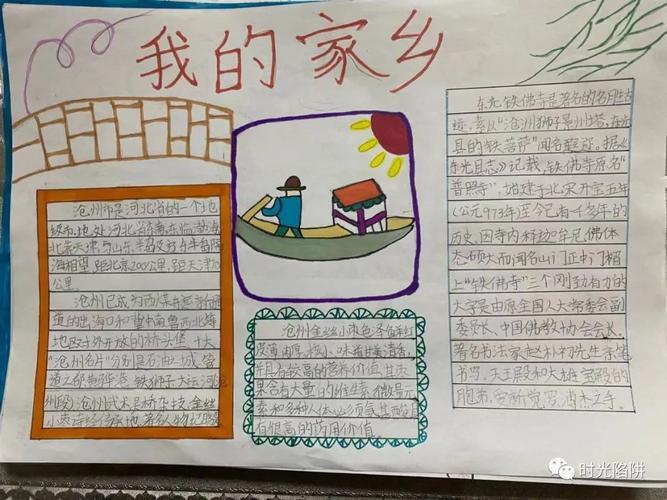 我的家乡
沧州市是河北省的一个地
级市,地处河北省东南,东临渤海
北靠天津,与山东半岛及辽东半岛隔
海相望,距北京200公里,距天津
公里。
沧州已成为西煤东运新通
道的出海口和冀中南鲁西北等
地区对外开放的桥头堡。十大
“沧州名片”分别是石油之城、管
道之都
铁狮子、大运河(沧
州段)沧州武术、吴桥杂技、金丝
小枣、诗经传承地、著名人物纪晓岚
沧州金丝小枣色圣红
皮薄肉厚、核小、味甜清香,
并且有较高的营养价值,其
果含有大量的维生素、微量元
素和多种人体必须氨基酸,
有很高的药用价值。
东光铁佛寺是著名的名胜古
迹,素以“沧洲狮子景州塔,东光
县的铁菩萨”闻名遐迩。据《
东光县志》记载,铁佛寺原名“
普照寺”,始建于北宋开宝五年
(公元973年)至今已有一千多年的
历史,因寺内释迦牟尼佛体
态硕大而闻名山门正中门楣
上“铁佛寺”三个刚劲有力的
大字是由原全国人大常委会副
委员长、中国佛教协会会长。
著名书法家赵朴初先生亲笔
书写,天王殿和大雄宝殿的
匾
爱新觉罗·溥杰之手。
时光陷阱